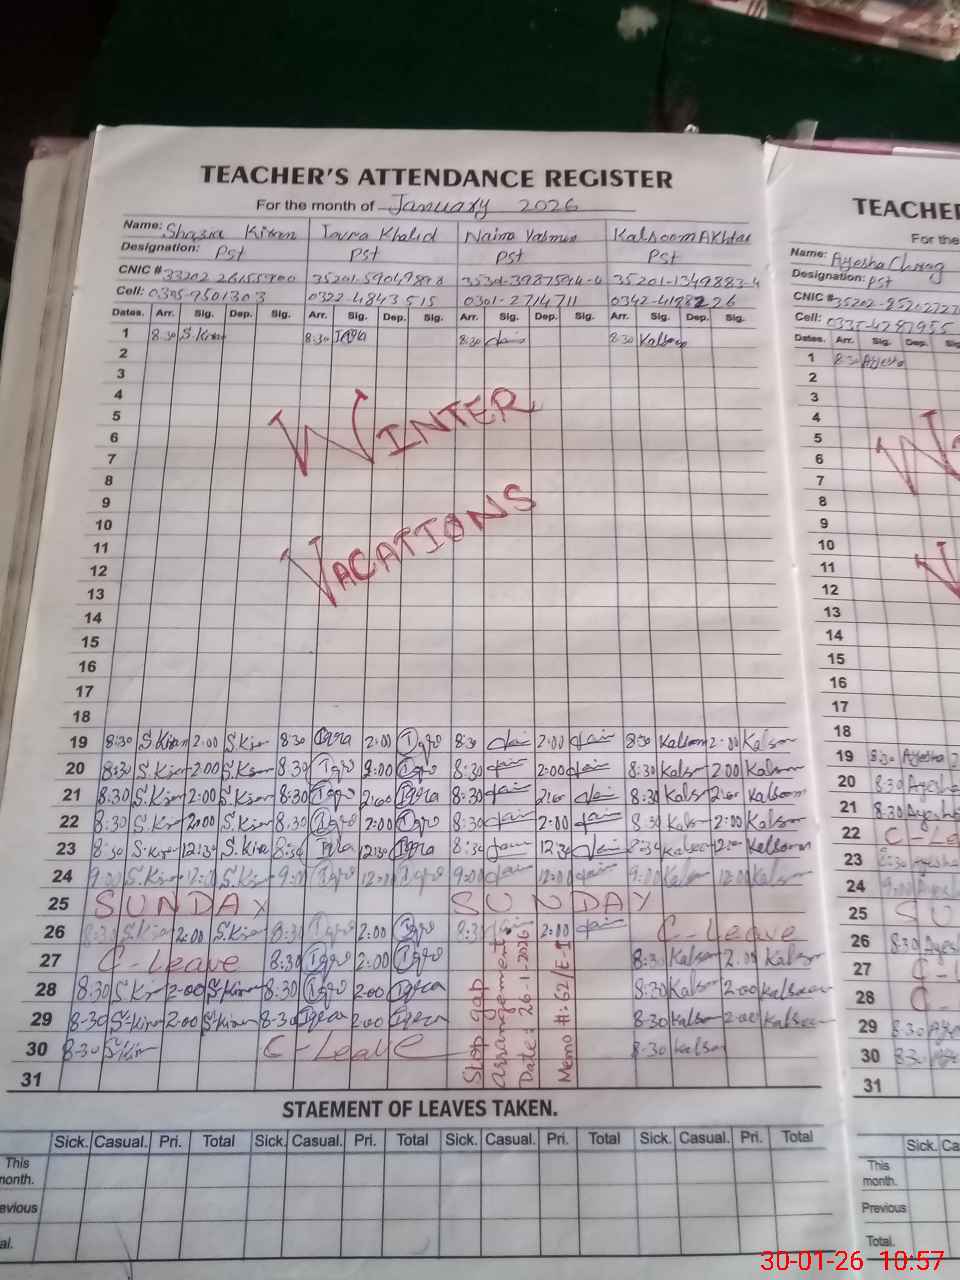 TEACHER'S ATTENDANCE REGISTER
For the month of January 2026
Name: Shazia Kiran Iqra Khalid Naima Yasmin Kalsoom Akhtar
Designation: Pst Pst Pst Pst
CNIC #
Cell: 0322-4843515 0301-2714711
Dates. Arr. Sig. Dep. Sig. Arr. Sig. Dep. Sig. Arr. Sig. Dep. Sig. Arr. Sig. Dep. Sig.
1 8:30 S.Kiran 8:30 Iqra 8:30 8:30 Kalsoom
2
3
4
WINTER
5
6
7
8
9
VACATIONS
10
11
12
13
14
15
16
17
18
19 8:30 S.Kiran 2:00 S.Kiran 8:30 Iqra 2:00 Iqra 8:30 2:00 8:30 Kalsoom 2:00 Kalsoom
20 8:30 S.Kiran 2:00 S.Kiran 8:30 Iqra 2:00 Iqra 8:30 2:00 8:30 Kalsoom 2:00 Kalsoom
21 8:30 S.Kiran 2:00 S.Kiran 8:30 Iqra 2:00 Iqra 8:30 2:00 8:30 Kalsoom 2:00 Kalsoom
22 8:30 S.Kiran 2:00 S.Kiran 8:30 Iqra 2:00 Iqra 8:30 2:00 8:30 Kalsoom 2:00 Kalsoom
23 8:30 S.Kiran 12:30 S.Kiran 8:30 Iqra 12:30 Iqra 8:30 12:30 8:30 Kalsoom Kalsoom
24 9:00 S.Kiran 12:00 S.Kiran 9:00 Iqra 12:00 Iqra 9:00 12:00 9:00 Kalsoom 12:00 Kalsoom
25 SUNDAY SUNDAY
26 8:30 S.Kiran 2:00 S.Kiran 8:30 Iqra 2:00 Iqra 8:30 2:00 C-Leave
27 C-Leave 8:30 Iqra 2:00 Iqra 8:30 Kalsoom 2:00 Kalsoom
28 8:30 S.Kiran 2:00 S.Kiran 8:30 Iqra 2:00 Iqra 8:30 Kalsoom 2:00 Kalsoom
29 8-30 S.Kiran 2:00 S.Kiran 8-30 Iqra 2:00 Iqra 8:30 Kalsoom 2:00 Kalsoom
30 8-30 S.Kiran C-Leave 8-30 Kalsoom
31
Stop gap
Arrangement
Date: 26-1-2026
Memo #: 62/E-I
STAEMENT OF LEAVES TAKEN.
Sick. Casual. Pri. Total Sick. Casual. Pri. Total Sick. Casual. Pri. Total Sick. Casual. Pri. Total
This
month.
evious
al.
TEACHE
For the
Name: Ayesha
Designation: Pst
CNIC #
Cell: 0335-4287955
Dates. Arr. Sig. Dep.
1 8:30 Ayesha
2
3
4
5
6
7
8
9
10
11
12
13
14
15
16
17
18
19 8:30 Ayesha
20 8:30 Ayesha
21 8:30 Ayesha
22 C-Le
23 8:30 Ayesha
24 9:00 Ayesha
25 SU
26 8:30 Ayesh
27 C-L
28 C-
29 8:30
30 8:30
31
Sick. Ca
This
month.
Previous
Total.
30-01-26 10:57